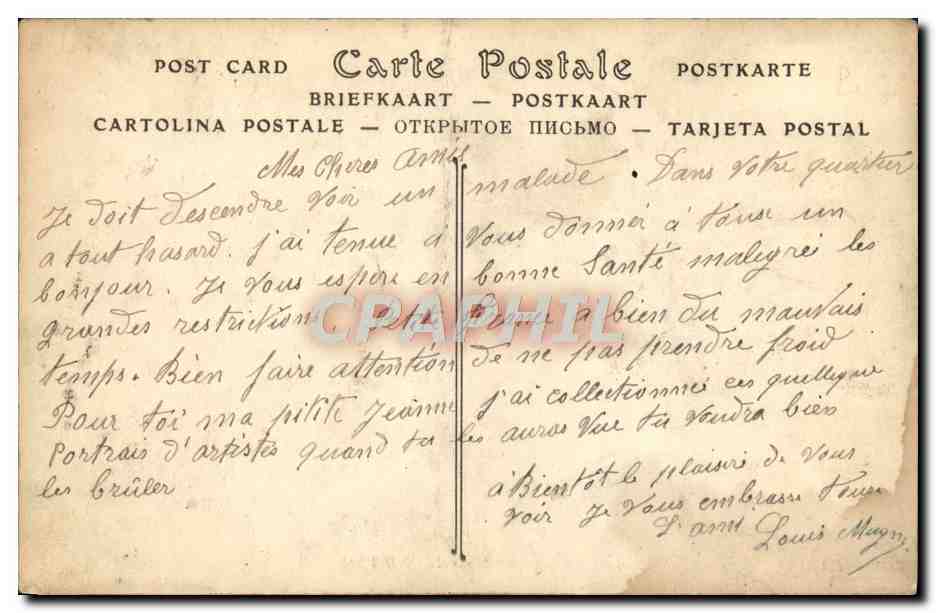 POST CARD Carte Postale POSTKARTE
BRIEFKAART — POSTKAART
CARTOLINA POSTALE — ОТКРЫТОЕ ПИСЬМО — TARJETA POSTAL
Mes Chères Amis
Je doit descendre voir un malade. Dans votre quartier
a tout hasard. j'ai tenue à vous donner à tous un
bonjour. Je vous espère en bonne Santé malegré les
grandes restrictions. Cette année a bien du mauvais
temps. Bien faire attention de ne pas prendre froid
Pour toi ma pitite Jeanne j'ai collectionné ces quellque
Portrais d'artistes quand tu les auras vue tu voudra bien
les brûler
à Bientôt le plaisire de vous
voir Je vous embrasse Tous
L'ami Louis
CPAPHIL